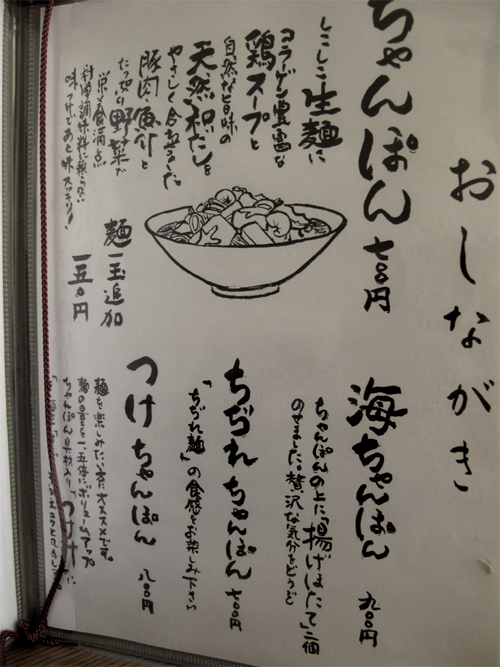 おしながき
ちゃんぽん 七〇〇円
しこしこ生麺に
コラーゲン豊富な
鶏スープと
自然な旨味の
天然和だしを
やさしく合わせました。
豚肉・魚介と
たっぷり野菜で
栄養満点
科学調味料に頼らない
味づけであと味スッキリ!
麺一玉追加
一五〇円
海ちゃんぽん 九〇〇円
ちゃんぽんの上に「揚げほたて」二個
のせました。贅沢な気分をどうぞ
ちぢれちゃんぽん 七〇〇円
「ちぢれ麺」の食感をお楽しみ下さい
つけちゃんぽん 八〇〇円
麺を楽しみたい方にオススメです。
麺の量も一.五倍にボリュームアップ
ちゃんぽん具材入り「つけ汁」に